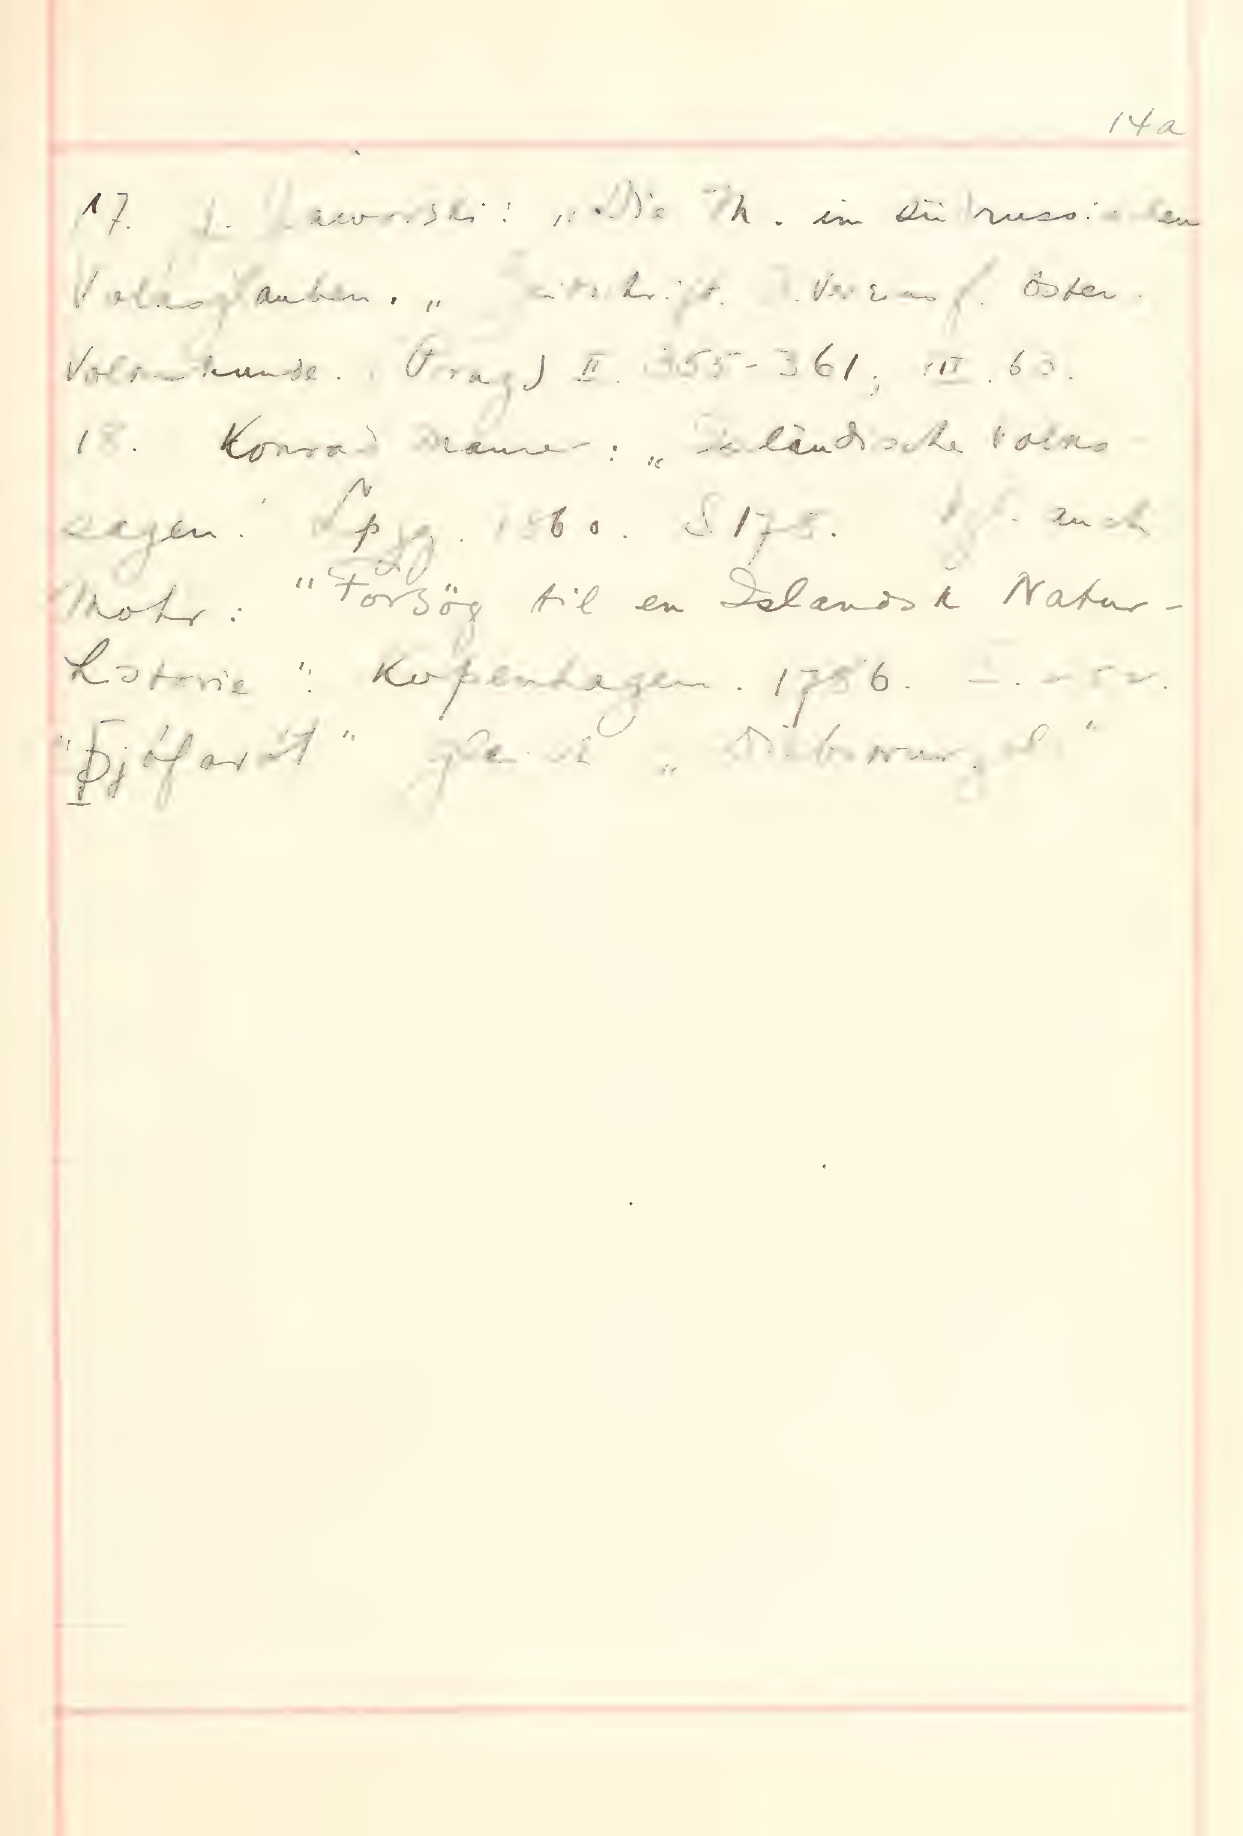 14a
17. J. Jaworski: „Die M. in südrussischen
Volksglauben. „ Zeitschrift. d. Verein f. öster.
Volkskunde. (Prag) II. 355-361; III. 63.
18. Konrad Maurer: „Isländische Volks
sagen." Lpzg. 1860. S. 178. Vgl. auch
Mohr: "Forsög til en Islandsk Natur-
historie": Kopenhagen. 1786.
"Þjófarót" gleich „Diebswurzel"